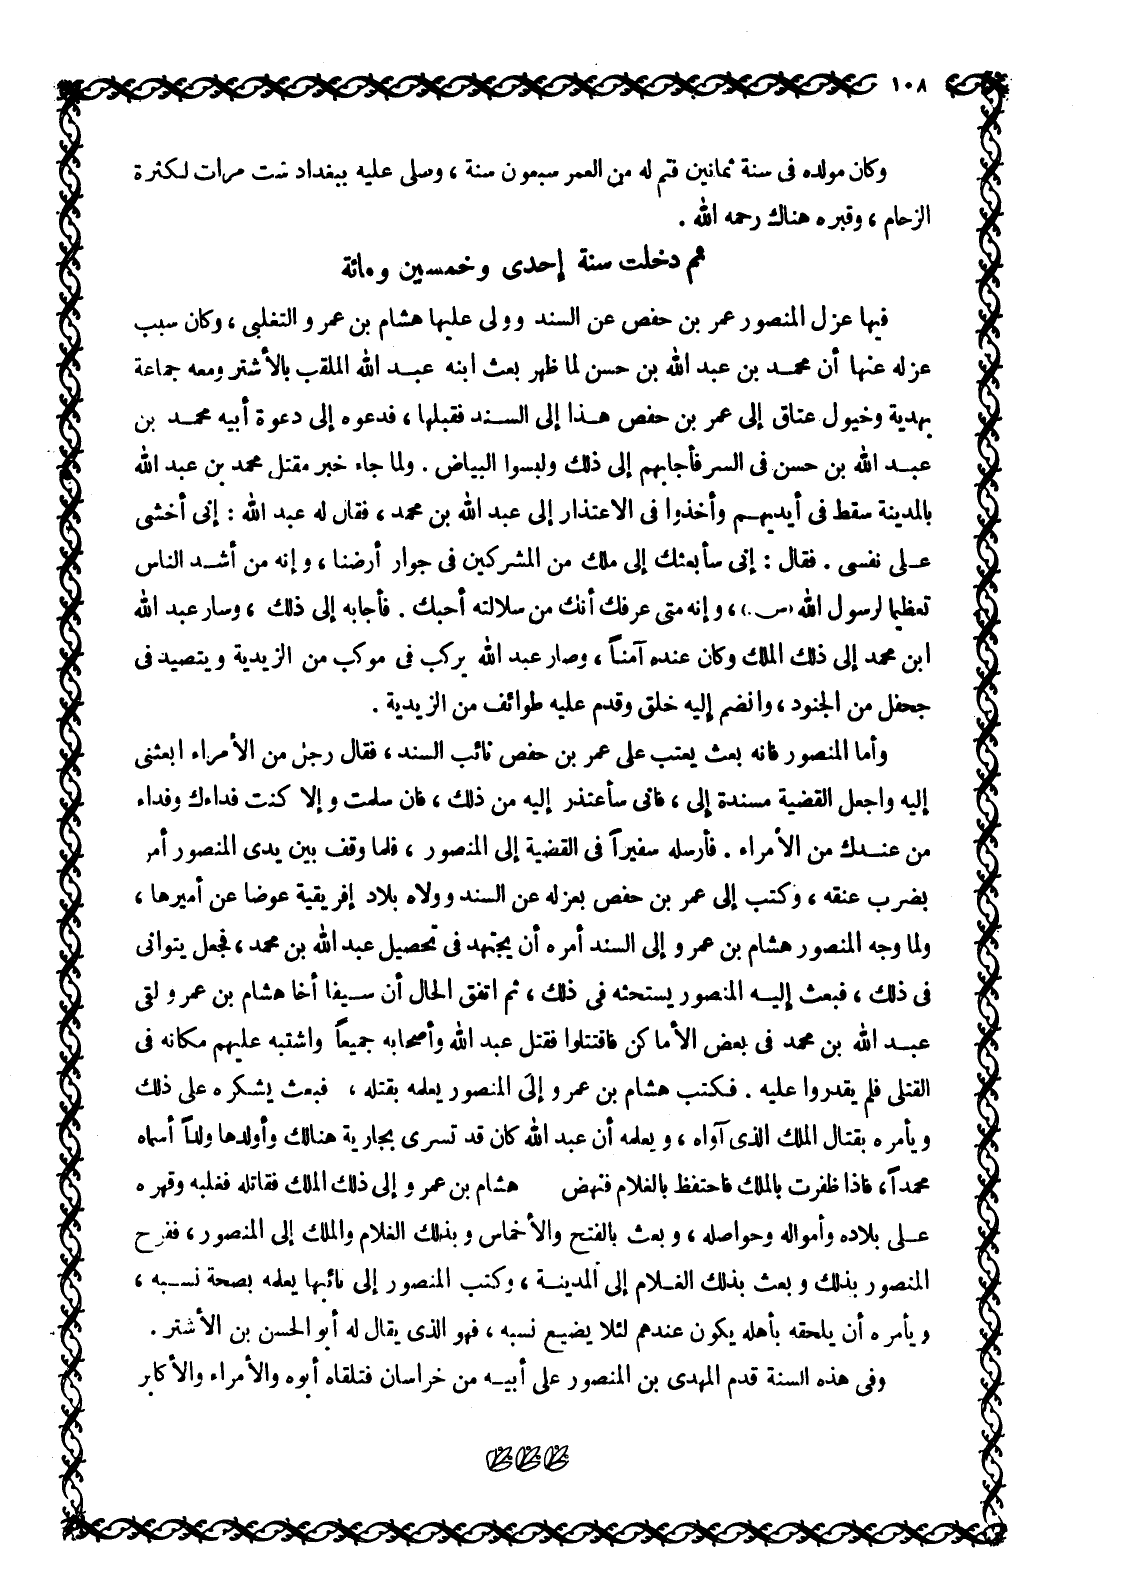 ١٠٨
وكان مولده فى سنة ثمانين فتم له من العمر سبعون سنة ، وصلى عليه ببغداد ست مرات لكثرة
الزحام ، وقبره هناك رحمه الله .
ثم دخلت سنة إحدى وخمسين ومائة
فيها عزل المنصور عمر بن حفص عن السند وولى عليها هشام بن عمرو التغلبى ، وكان سبب
عزله عنها أن محمد بن عبد الله بن حسن لما ظهر بعث ابنه عبد الله الملقب بالأشتر ومعه جماعة
بهدية وخيول عتاق إلى عمر بن حفص هذا إلى السند فقبلها ، فدعوه إلى دعوة أبيه محمد بن
عبد الله بن حسن فى السر فأجابهم إلى ذلك ولبسوا البياض . ولما جاء خبر مقتل محمد بن عبد الله
بالمدينة سقط فى أيديهم وأخذوا فى الاعتذار إلى عبد الله بن محمد ، فقال له عبد الله : إنى أخشى
على نفسى . فقال : إنى سأبعثك إلى ملك من المشركين فى جوار أرضنا ، وإنه من أشد الناس
تعظيما لرسول الله (ص.) ، وإنه متى عرفك أنك من سلالته أحبك . فأجابه إلى ذلك ، وسار عبد الله
ابن محمد إلى ذلك الملك وكان عنده آمناً ، وصار عبد الله يركب فى موكب من الزيدية ويتصيد فى
جحفل من الجنود ، وانضم إليه خلق وقدم عليه طوائف من الزيدية .
وأما المنصور فانه بعث يعتب على عمر بن حفص نائب السند ، فقال رجل من الأمراء ابعثنى
إليه واجعل القضية مسندة إلى ، فانى سأعتذر إليه من ذلك ، فان سلمت وإلا كنت فداءك وفداء
من عندك من الأمراء . فأرسله سفيراً فى القضية إلى المنصور ، فلما وقف بين يدى المنصور أمر
بضرب عنقه ، وكتب إلى عمر بن حفص بعزله عن السند وولاه بلاد إفريقية عوضا عن أميرها ،
ولما وجه المنصور هشام بن عمرو إلى السند أمره أن يجتهد فى تحصيل عبد الله بن محمد ، فجعل يتوانى
فى ذلك ، فبعث إليه المنصور يستحثه فى ذلك ، ثم اتفق الحال أن سيفا أخا هشام بن عمرو لقى
عبد الله بن محمد فى بعض الأماكن فاقتتلوا فقتل عبد الله وأصحابه جميعاً واشتبه عليهم مكانه فى
القتلى فلم يقدروا عليه . فكتب هشام بن عمرو إلى المنصور يعلمه بقتله ، فبعث يشكره على ذلك
ويأمره بقتال الملك الذى آواه ، ويعلمه أن عبد الله كان قد تسرى بجارية هنالك وأولدها ولداً أسماه
محمداً ، فاذا ظفرت بالملك فاحتفظ بالغلام فنهض هشام بن عمرو إلى ذلك الملك فقاتله فغلبه وقهره
على بلاده وأمواله وحواصله ، وبعث بالفتح والأخماس وبذلك الغلام والملك إلى المنصور ، ففرح
المنصور بذلك وبعث بذلك الغلام إلى المدينة ، وكتب المنصور إلى نائبها يعلمه بصحة نسبه ،
ويأمره أن يلحقه بأهله يكون عندهم لئلا يضيع نسبه ، فهو الذى يقال له أبو الحسن بن الأشتر .
وفى هذه السنة قدم المهدى بن المنصور على أبيه من خراسان فتلقاه أبوه والأمراء والأكابر